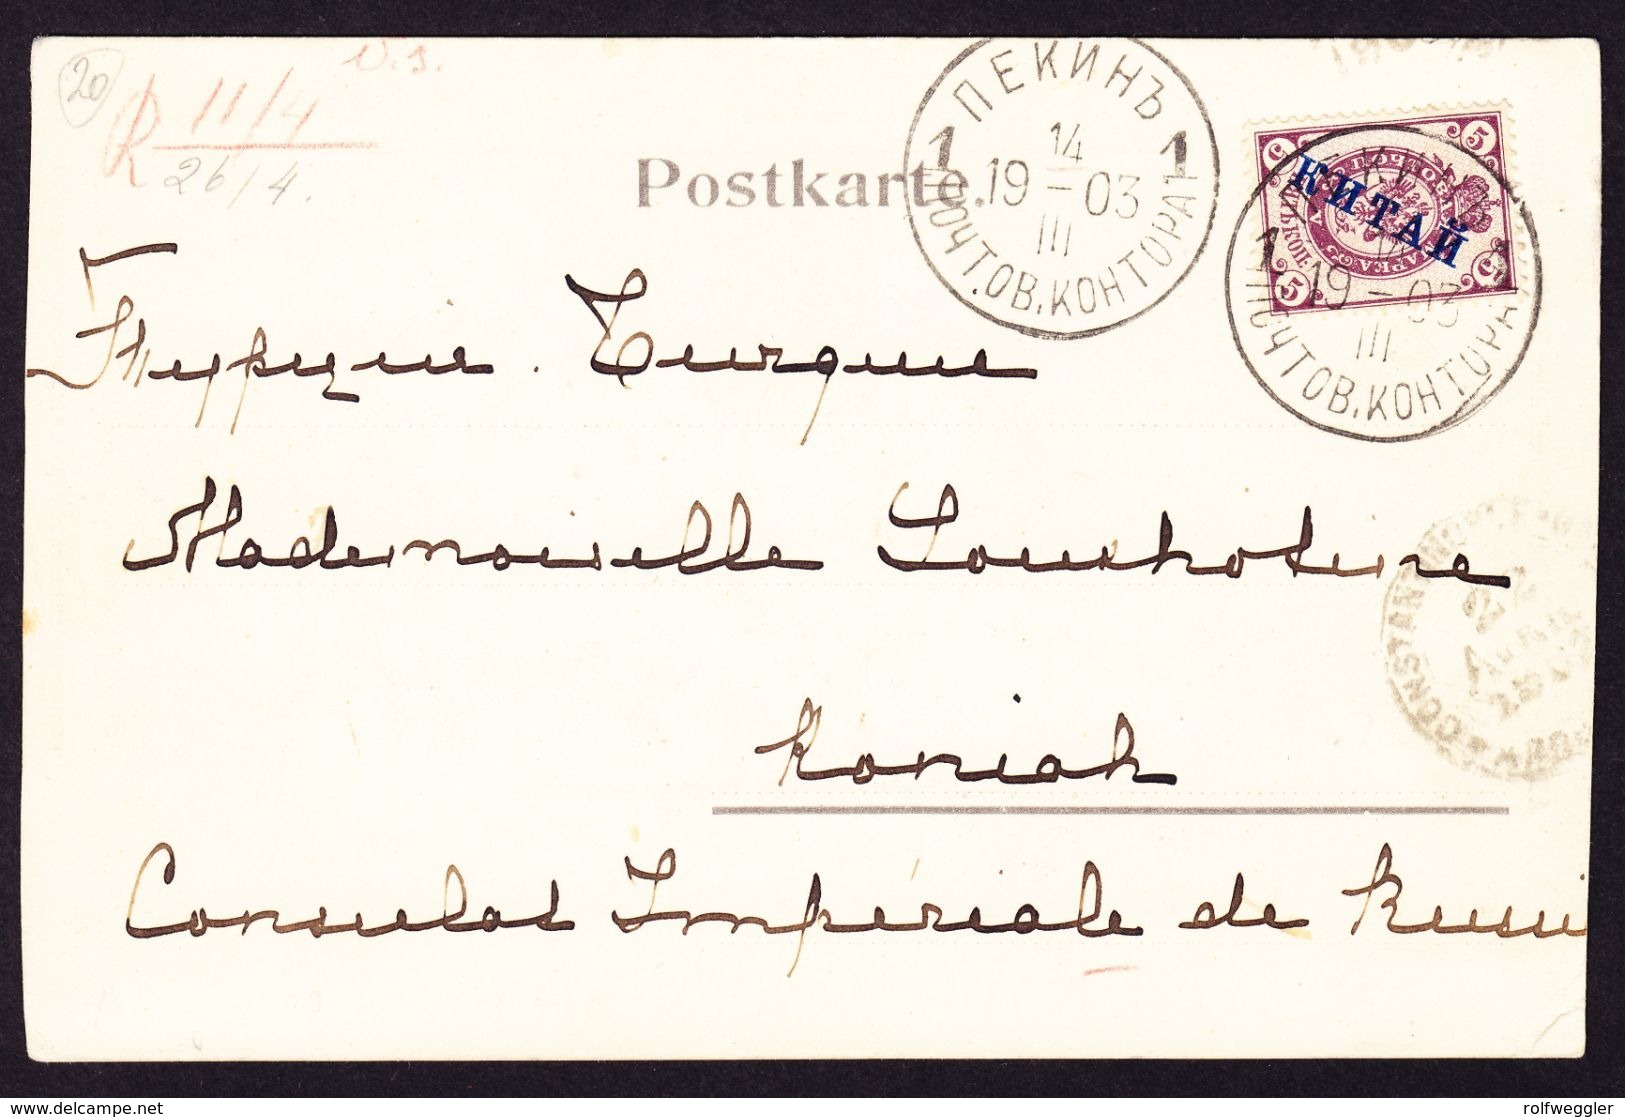 20
V.1.
R 11/4
26/4.
Postkarte.
ПЕКИНЪ
1 14 1
19 - 03
III
ПОЧТОВ. КОНТОРА
5 5
КИТАЙ
5 5
19 - 03
III
ПОЧТОВ. КОНТОРА
Турция. Turquie
Mademoiselle
Koniah
Consulat Impériale de Russi
CONSTANTINOPLE
delcampe.net
rolfweggler